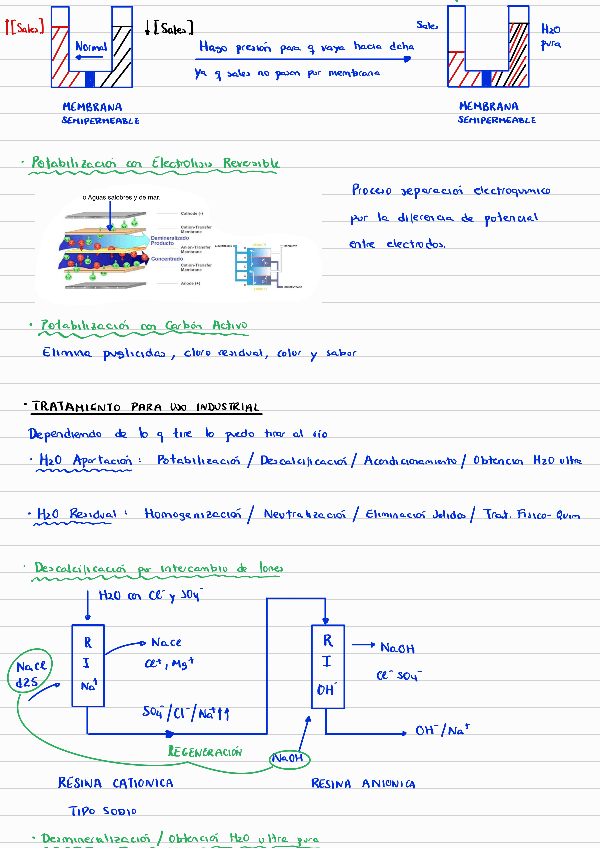 ↑[Sales] ↓[Sales] Sales H2O
Normal Hago presión para q vaya hacia dcha pura
Ya q sales no pasen por membrana
MEMBRANA MEMBRANA
SEMIPERMEABLE SEMIPERMEABLE
· Potabilización con Electrolisis Reversible
o Aguas salobres y de mar.
Cathode (-)
Cation-Transfer
Membrane
Demineralizado
Producto
Anion-Transfer
Membrane
Concentrado
Cation-Transfer
Membrane
Anode (+)
Proceso separación electroquímico
por la diferencia de potencial
entre electrodos.
· Potabilización con Carbón Activo
Elimina puglicidas, cloro residual, color y sabor
· TRATAMIENTO PARA USO INDUSTRIAL
Dependiendo de lo q tire lo puedo tirar al río
· H2O Aportación: Potabilización / Descalcificación / Acondicionamiento / Obtencion H2O ultra
· H2O Residual: Homogenización / Neutralización / Eliminación Solidos / Trat. Fisico-Quim
· Descalcificación por intercambio de Iones
H2O con Cl⁻ y SO4⁻
R I Na⁺
NaCl
Cl⁺, Mg⁺
NaCl
d2S
R I OH⁻
NaOH
Cl⁻ SO4⁻
SO4⁻/Cl⁻/Na⁺↑↑
OH⁻/Na⁺
REGENERACIÓN
NaOH
RESINA CATIONICA RESINA ANIONICA
TIPO SODIO
· Desmineralización / Obtención H2O ultra pura